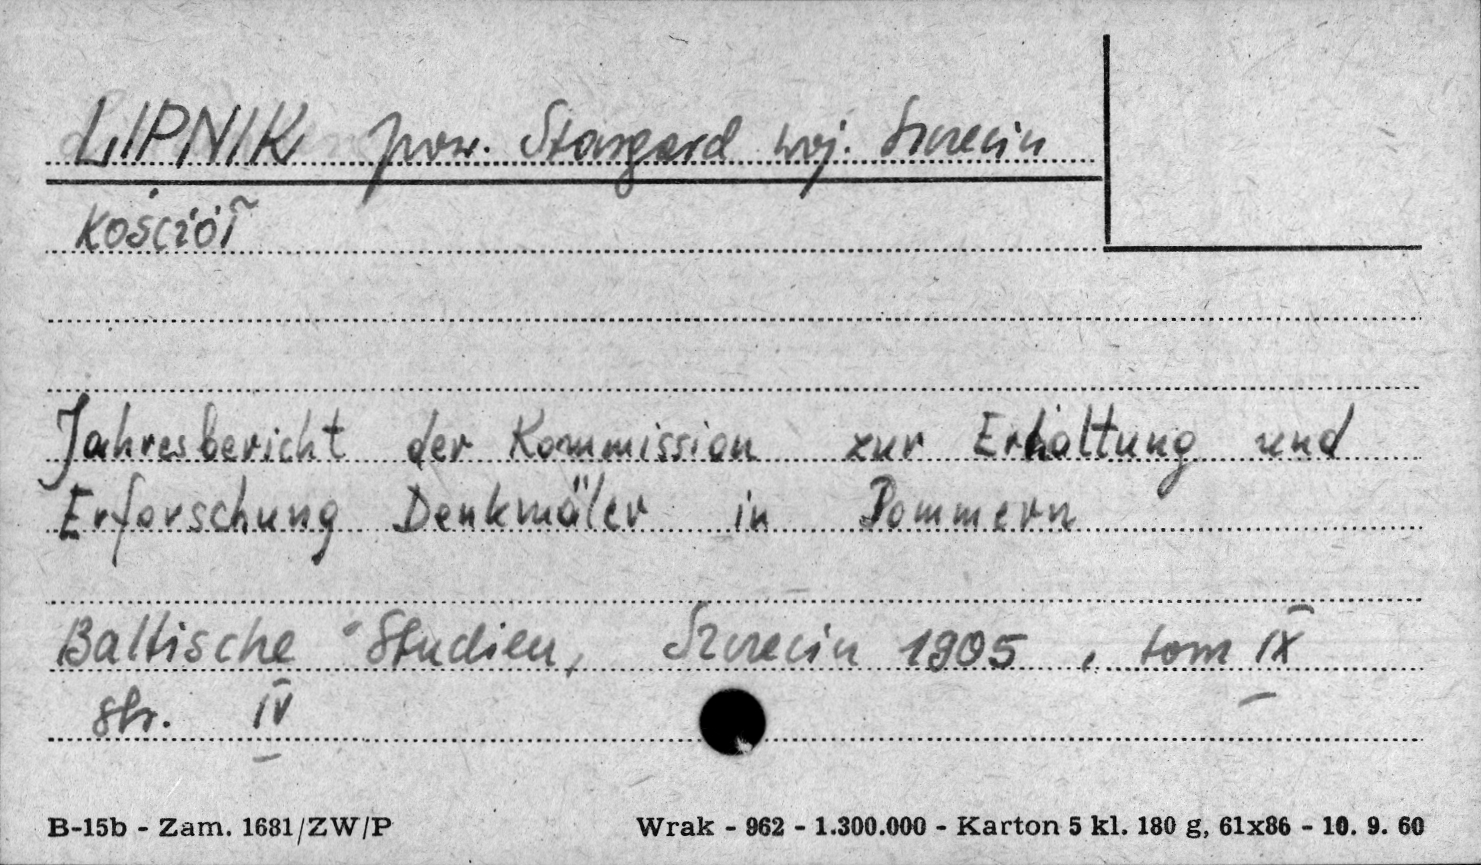 LIPNIK pow. Stargard woj. Szczecin
kościół
Jahresbericht der Kommission zur Erhaltung und
Erforschung Denkmäler in Pommern
Baltische Studien, Szczecin 1905, tom IX
str. IV
B-15b - Zam. 1681/ZW/P Wrak - 962 - 1.300.000 - Karton 5 kl. 180 g, 61x86 - 10. 9. 60